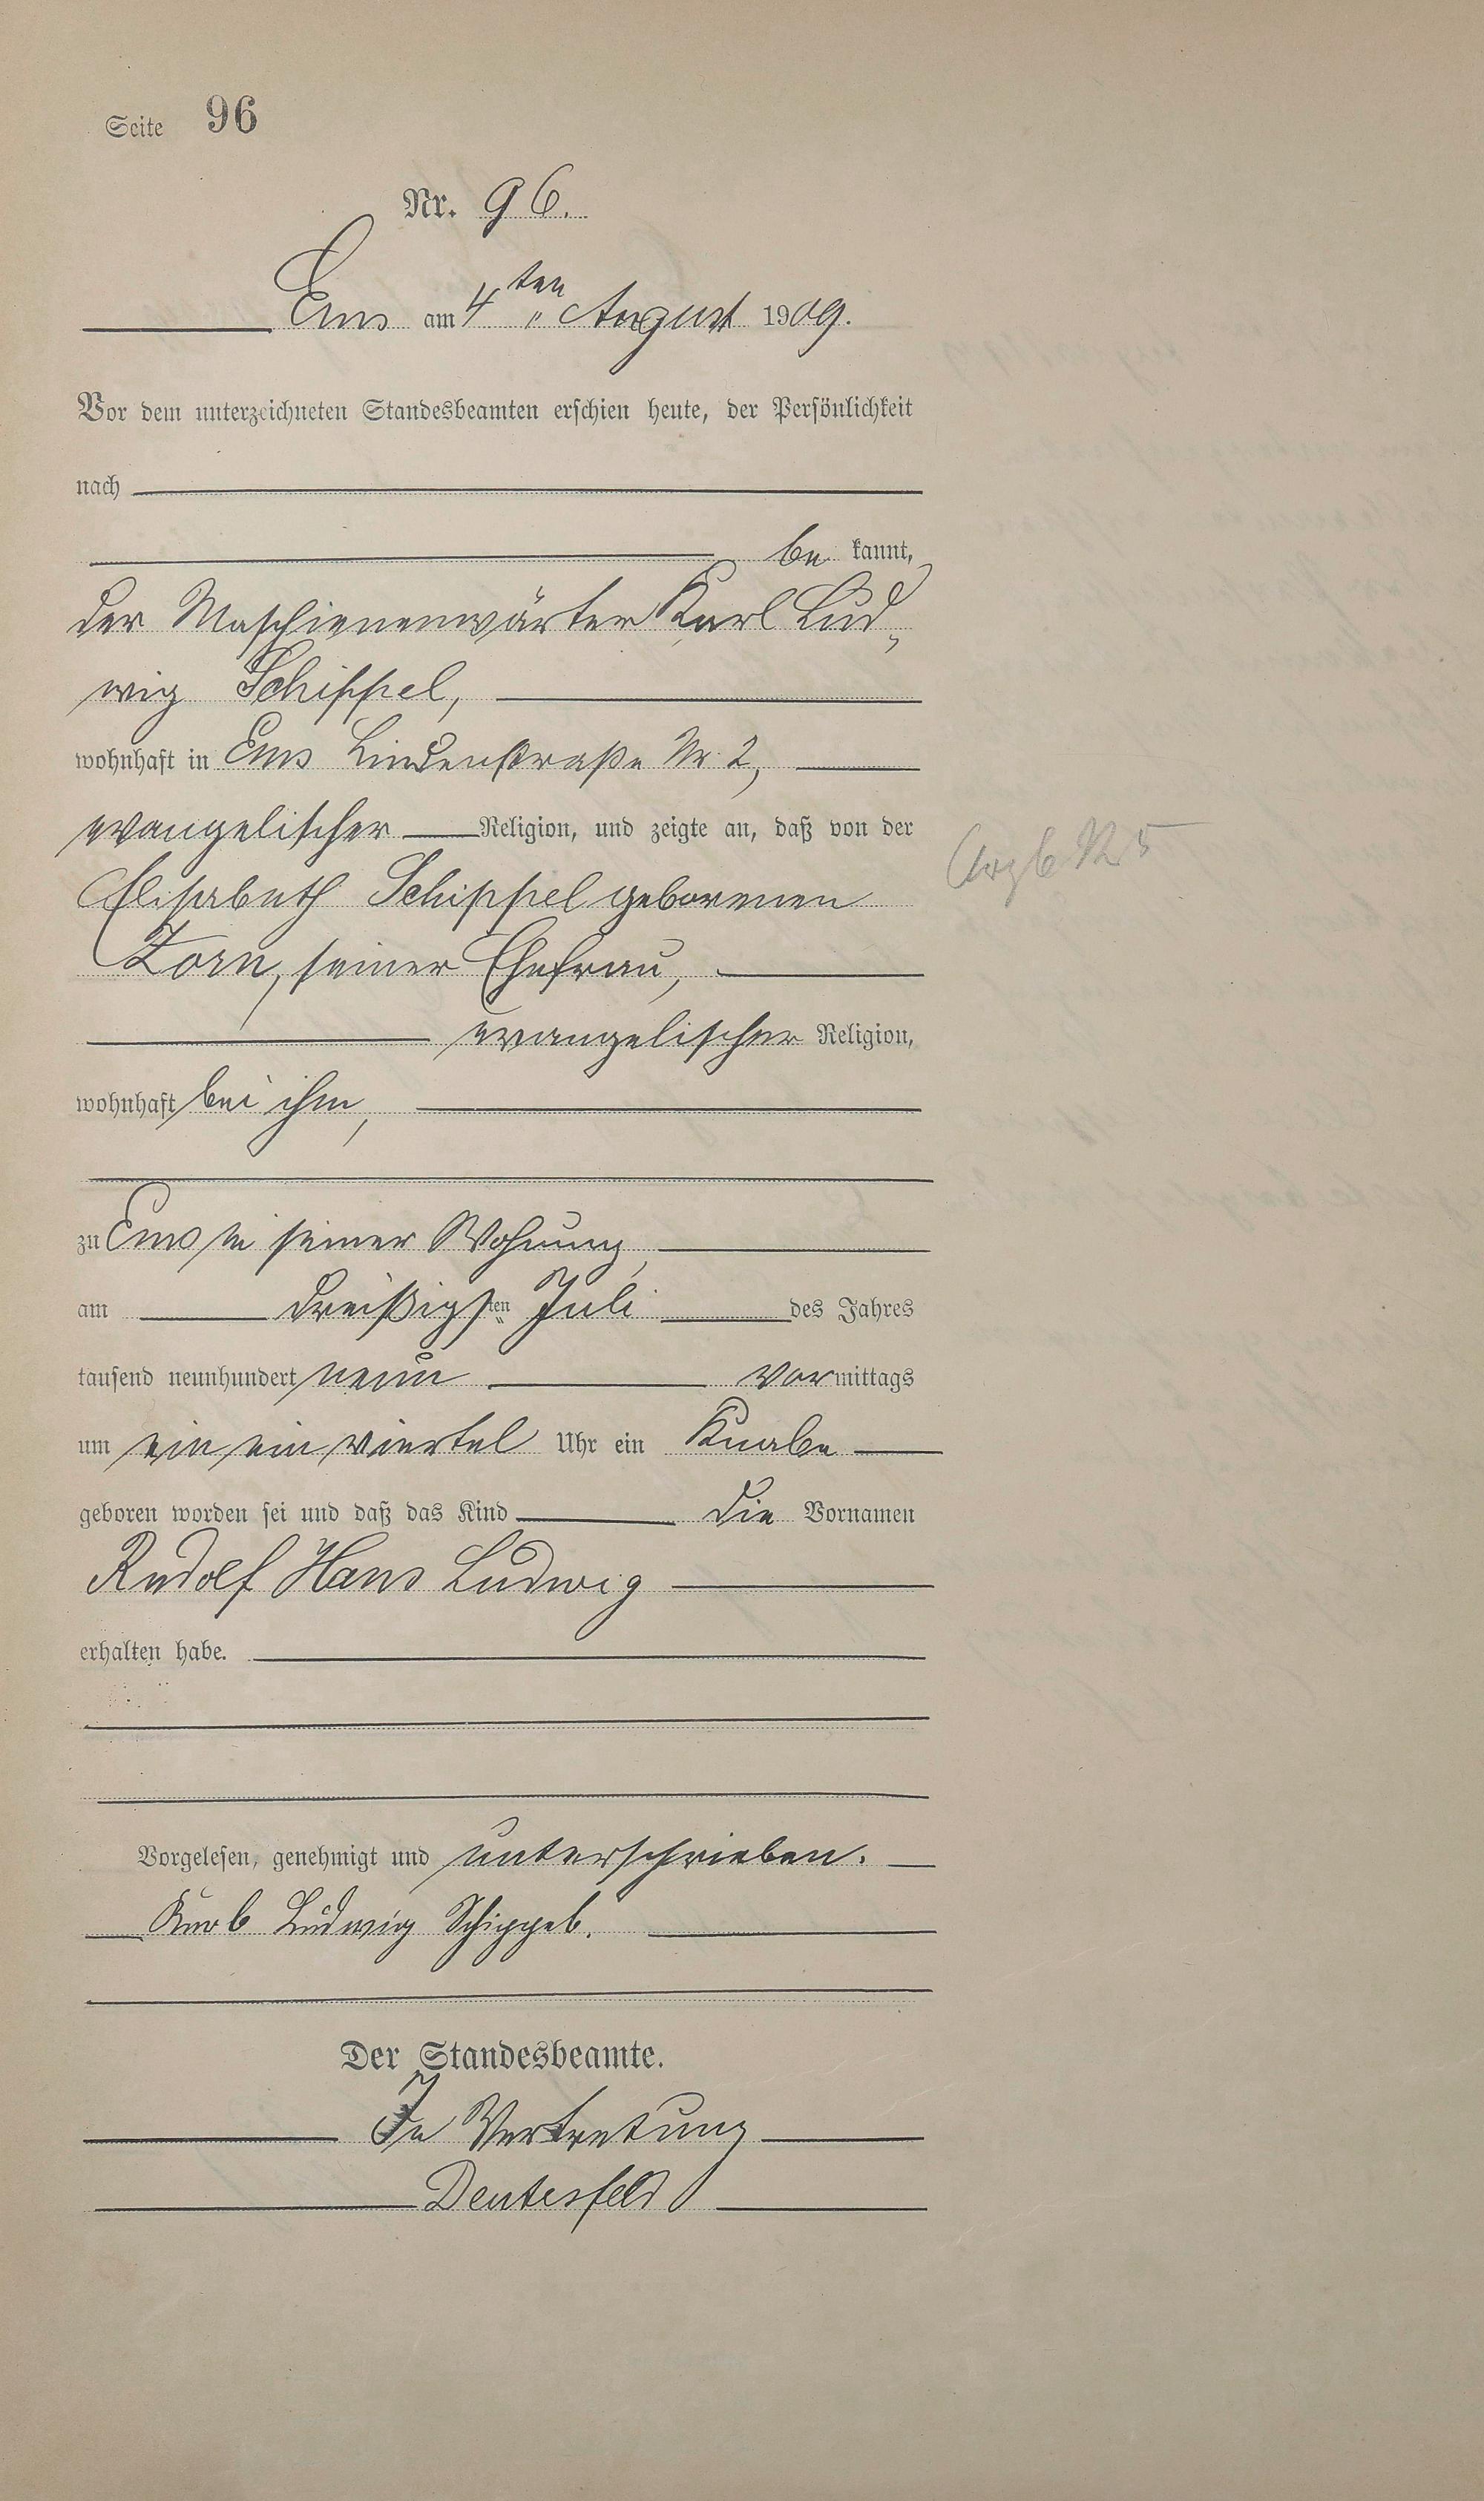 Seite 96
Nr. 96.
Ems am 4ten August 1909.
Vor dem unterzeichneten Standesbeamten erschien heute, der Persönlichkeit
nach
be kannt,
der Maschienenwärter Karl Lud„
wig Schippel,
wohnhaft in Ems Lindenstraße Nr. 2,
evangelischer Religion, und zeigte an, daß von der
Elisabeth Schippel geborenen
Zorn, seiner Ehefrau,
evangelischer Religion,
wohnhaft bei ihm,
zu Ems in seiner Wohnung,
am dreißigsten Juli des Jahres
tausend neunhundert neun vormittags
um ein ein viertel Uhr ein Knabe
geboren worden sei und daß das Kind die Vornamen
Rudolf Hans Ludwig
erhalten habe.
Vorgelesen, genehmigt und unterschrieben.
Karl Ludwig Schippel.
Der Standesbeamte.
In Vertretung
Deutesfeld